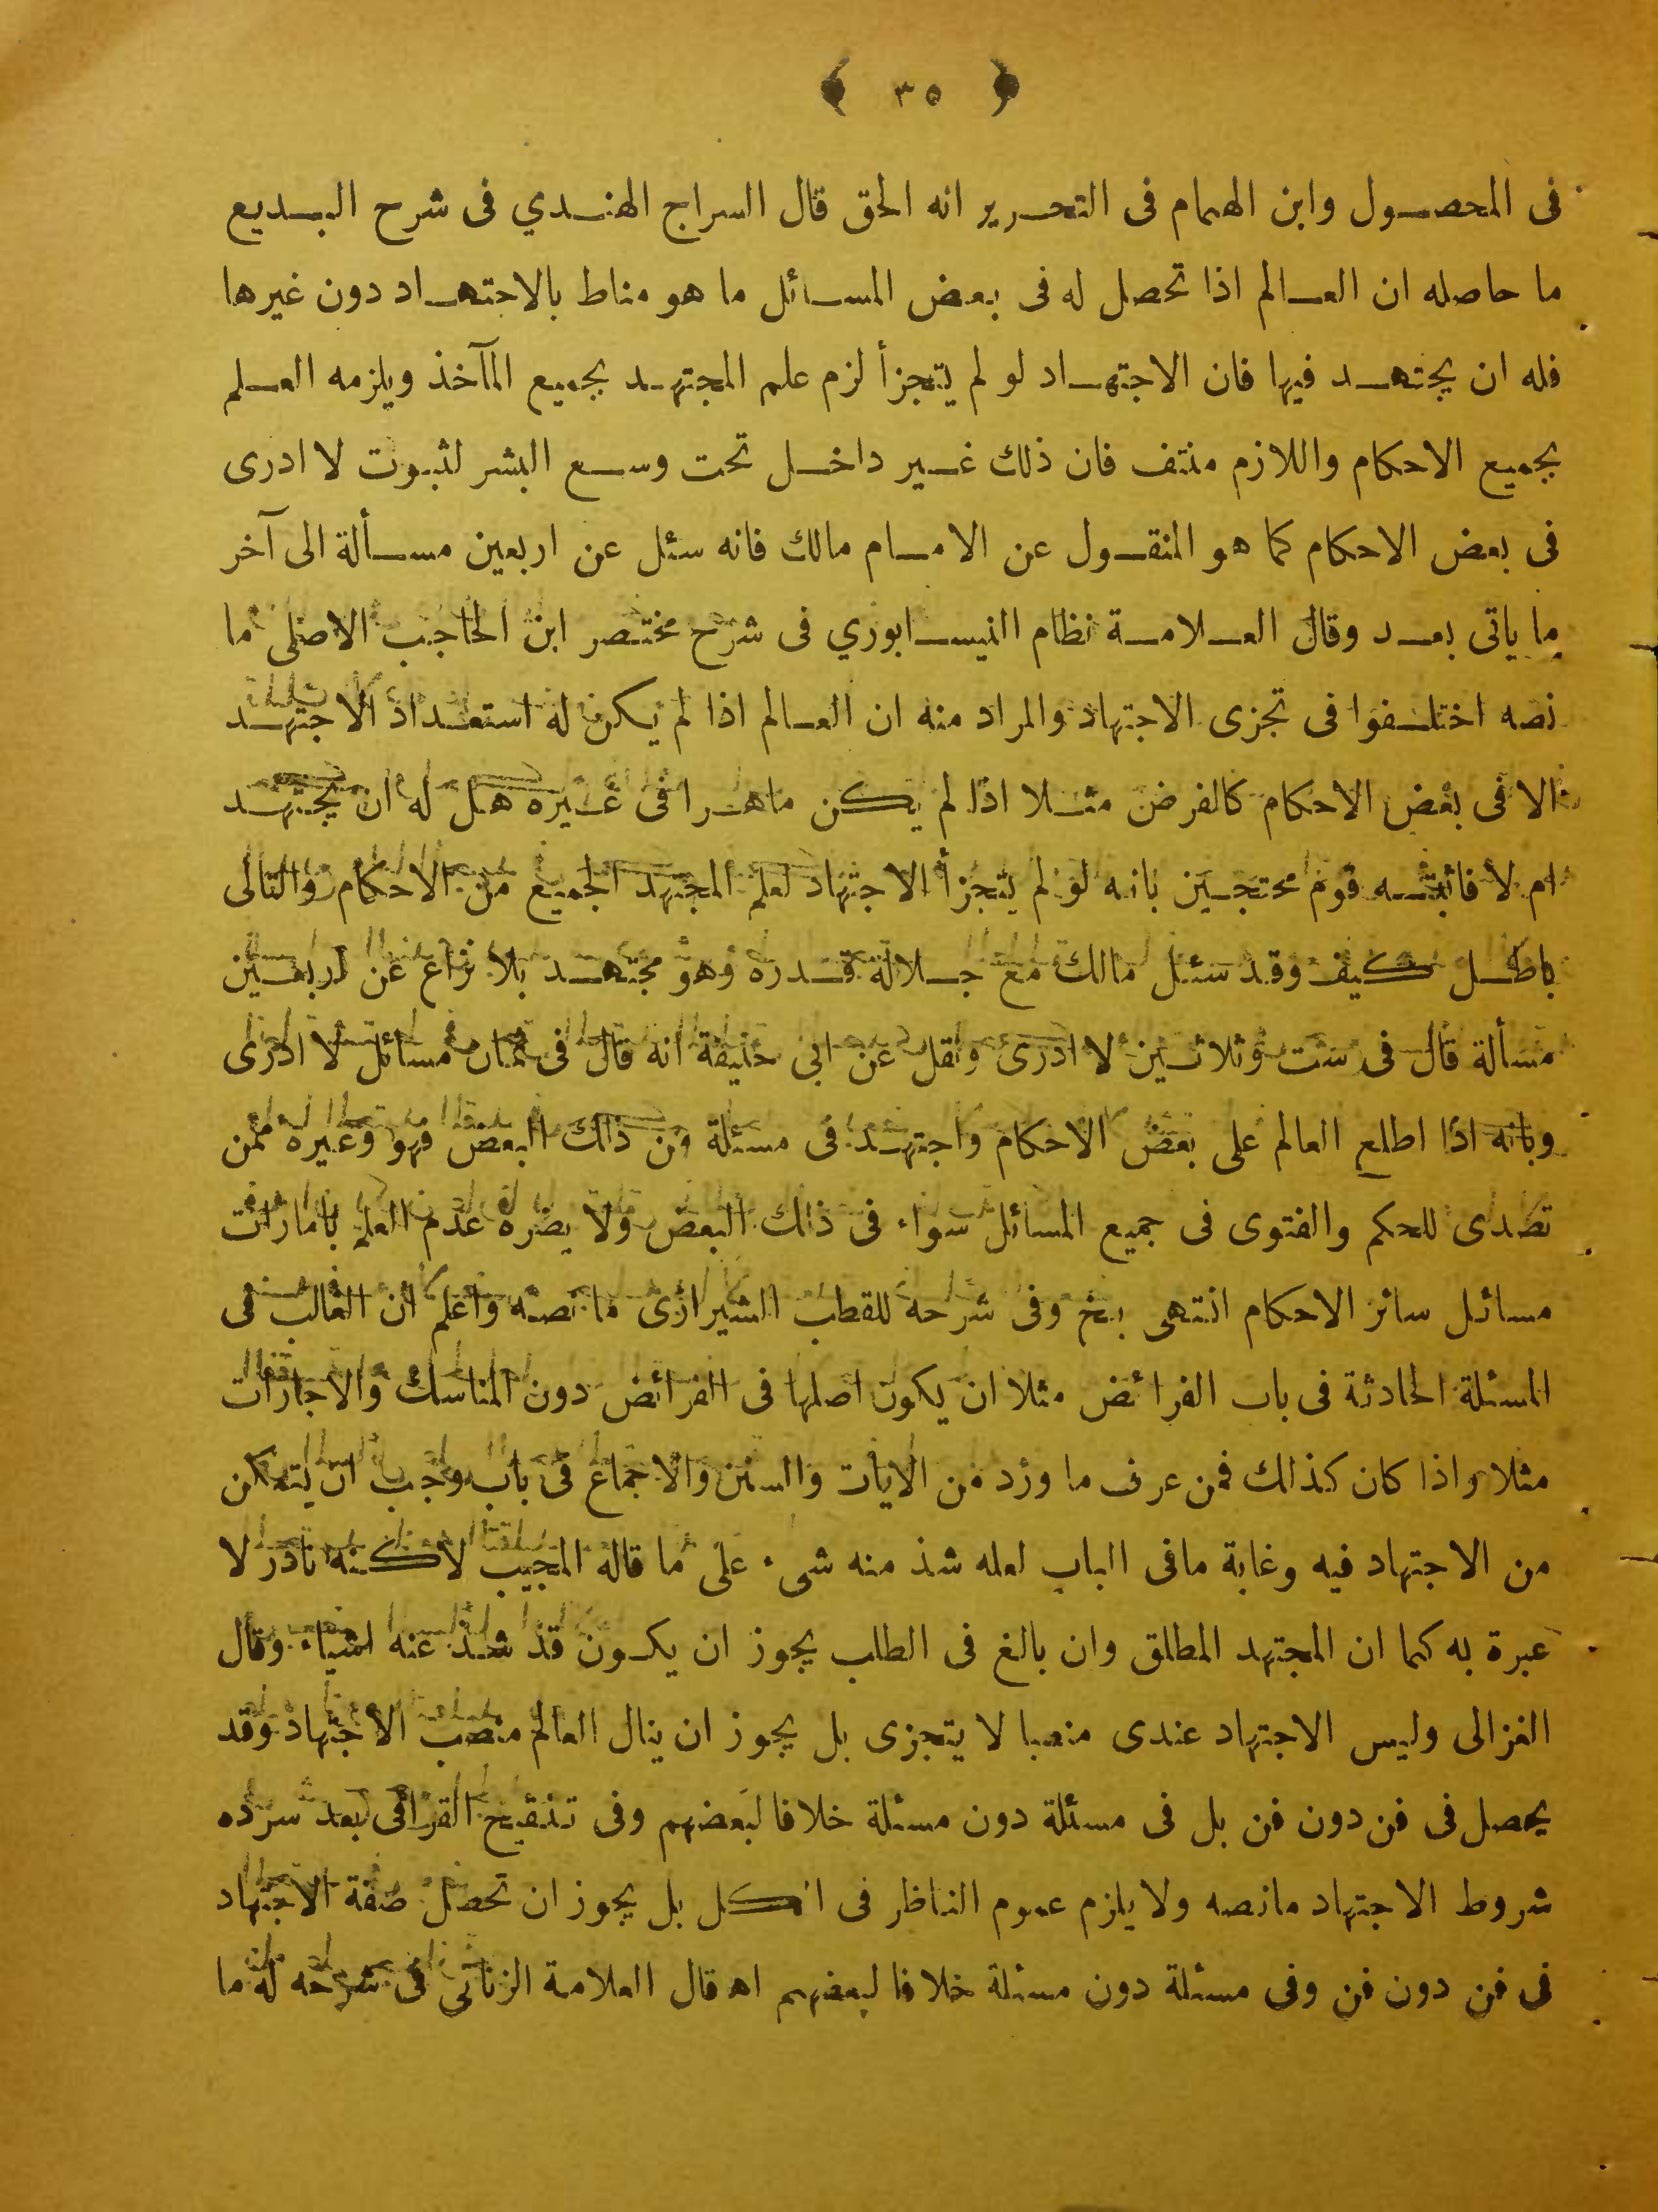 ﴿ ٣٥ ﴾
فى المحصول وابن الهمام فى التحرير انه الحق قال السراج الهندي فى شرح البديع
ما حاصله ان العالم اذا تحصل له فى بعض المسائل ما هو مناط بالاجتهاد دون غيرها
فله ان يجتهد فيها فان الاجتهاد لو لم يتجزأ لزم علم المجتهد بجميع المآخذ ويلزمه العلم
بجميع الاحكام واللازم منتف فان ذلك غير داخل تحت وسع البشر لثبوت لا ادرى
فى بعض الاحكام كما هو المنقول عن الامام مالك فانه سئل عن اربعين مسألة الى آخر
ما ياتى بعد وقال العلامة نظام النيسابوري فى شرح مختصر ابن الحاجب الاصلى ما
نصه اختلفوا فى تجزى الاجتهاد والمراد منه ان العالم اذا لم يكن له استعداد الاجتهد
الا فى بعض الاحكام كالفرض مثلا اذا لم يكن ماهرا فى غيره هل له ان يجتهد
ام لا فاثبته قوم محتجين بانه لو لم يتجزأ الاجتهاد لعلم المجتهد الجميع من الاحكام والتالى
باطل كيف وقد سئل مالك مع جلالة قدره وهو مجتهد بلا نزاع عن اربعين
مسألة قال فى ست وثلاثين لا ادرى ونقل عن ابى حنيفة انه قال فى ثمان مسائل لا ادرى
وبانه اذا اطلع العالم على بعض الاحكام واجتهد فى مسئلة من ذلك البعض فهو وغيره ممن
تصدى للحكم والفتوى فى جميع المسائل سواء فى ذلك البعض ولا يضره عدم العلم بامارات
مسائل سائر الاحكام انتهى بخ وفى شرحه للقطب الشيرازى ما نصه واعلم ان الغالب فى
المسئلة الحادثة فى باب الفرائض مثلا ان يكون اصلها فى الفرائض دون المناسك والاجارات
مثلا واذا كان كذلك فمن عرف ما ورد من الايات والسنن والاجماع فى باب وجب ان يتمكن
من الاجتهاد فيه وغاية مافى الباب لعله شذ منه شىء على ما قاله المجيب لاكنه نادر لا
عبرة به كما ان المجتهد المطلق وان بالغ فى الطلب يجوز ان يكون قد شذ عنه اشياء وقال
الغزالى وليس الاجتهاد عندى منصبا لا يتجزى بل يجوز ان ينال العالم منصب الاجتهاد وقد
يحصل فى فن دون فن بل فى مسئلة دون مسئلة خلافا لبعضهم وفى تنقيح القرافى بعد سرده
شروط الاجتهاد مانصه ولا يلزم عموم الناظر فى الكل بل يجوز ان تحصل صفة الاجتهاد
فى فن دون فن وفى مسئلة دون مسئلة خلافا لبعضهم اه قال العلامة الزناتى فى شرحه له ما